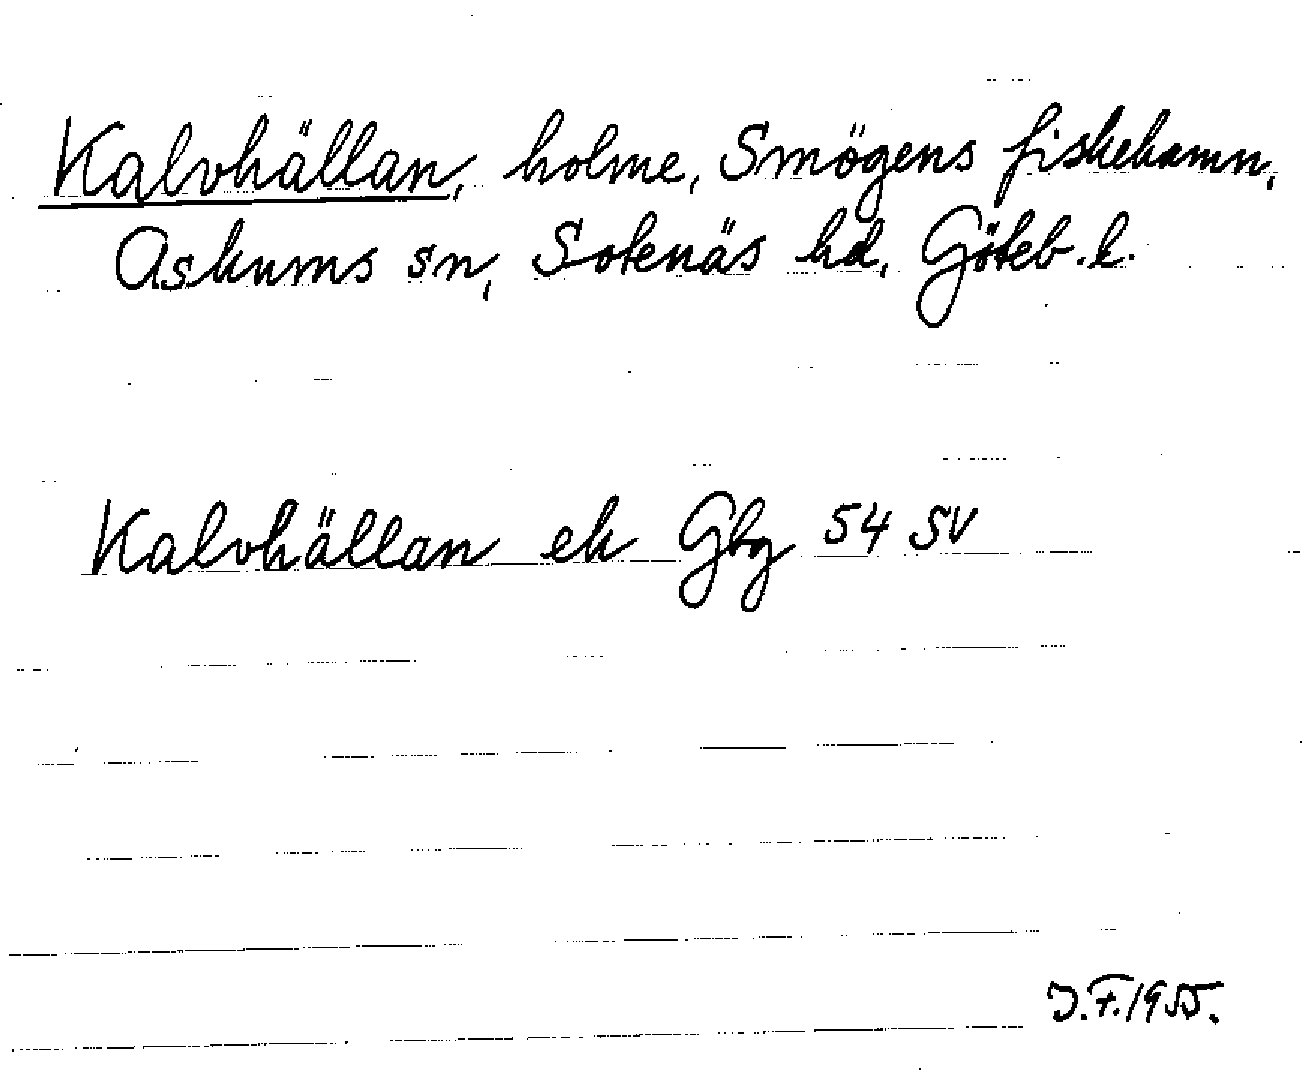 Kalvhällan, holme, Smögens fiskehamn,
Askums sn, Sotenäs hd, Göteb. l.
Kalvhällan ek Gbg 54 SV
J.F. 1955.